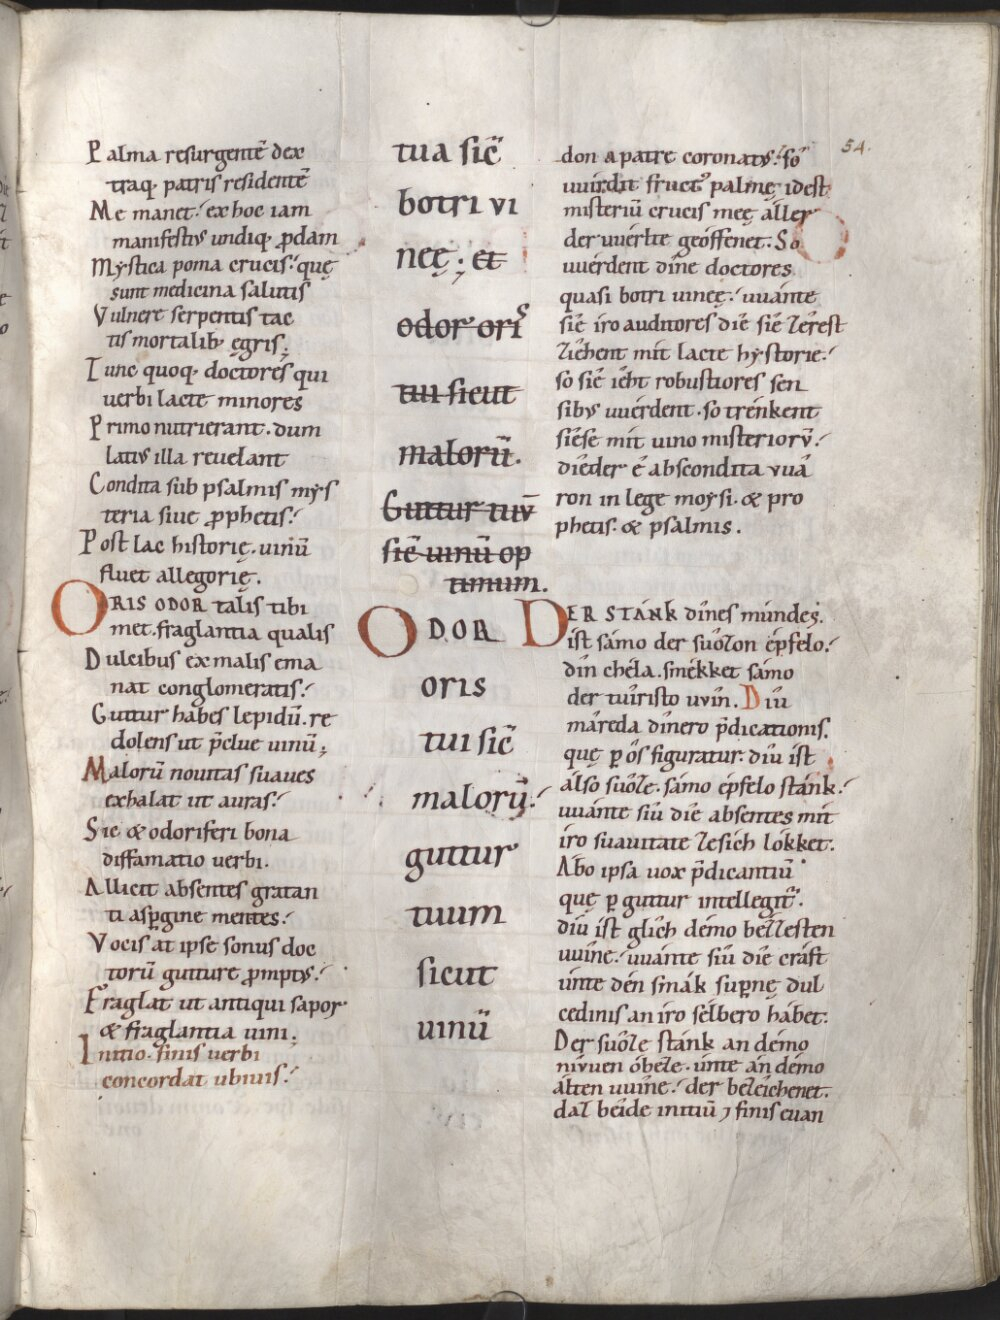 54.
Palma resurgentē dex
traq; patris residentē
Me manet. ex hoc iam
manifestus undiq; ꝓdam
Mystica poma crucis. quę
sunt medicina salutis
Vulnere serpentis tac
tis mortalib; ęgris;
Tunc quoq; doctores qui
uerbi lacte minores
Primo nutrierant. dum
latius illa reuelant
Condita sub psalmis mys
teria siue ꝓphetis.
Post lac historię. uinū
fluet allegorię.
ORIS ODOR talis tibi
met. fraglantia qualis
Dulcibus ex malis ema
nat conglomeratis.
Guttur habes lepidū. re
dolens ut p̄clue uinū;
Malorū nouitas suaues
exhalat ut auras.
Sic & odoriferi bona
diffamatio uerbi.
Allicit absentes gratan
ti asꝑgine mentes.
Vocis at ipse sonus doc
torū gutture ꝓmptus.
Fraglat ut antiqui sapor
& fraglantia uini.
Initio. finis uerbi
concordat ubiuis.
tua sic̄
botri vi
neę; et
odor oris
tui sicut
malorū.
Guttur tuū
sic̄ uinū op
timum.
ODOR
oris
tui sic̄
malorū.
guttur
tuum
sicut
uinū
don a patre coronatus. so
uuirdit fructus palmę. idest
misteriū crucis meę aller
der uuerlte geoffenet. So
uuerdent dine doctores
quasi botri uineę. uuante
sie iro auditores die sie zerest
ziehent mit lacte hystorie.
so sie ieht robustiores sen
sibus uuerdent. so trenkent
siese mit uino misteriorū.
dieder e abscondita vua
ron in lege moysi. & pro
phetis. & psalmis.
DER STANK dines mundes.
ist samo der suozon epfelo.
din chela. smekket samo
der tuiristo uvin. Diu
mareda dinero p̄dicationis.
quę ꝑ os figuratur. diu ist
also suoze. samo epfelo stank.
uuante siu die absentes mit
iro suauitate zesich lokket.
Abo ipsa uox p̄dicantiū
quę ꝑ guttur intellegit̄.
diu ist glich demo bezzesten
uuine. uuante siu die craft
unte den smak suꝑnę dul
cedinis an iro selbero habet.
Der suoze stank an demo
nivuen obeze. unte an demo
alten uuine. der bezeichenet.
daz beide initiū ⁊ finis euan